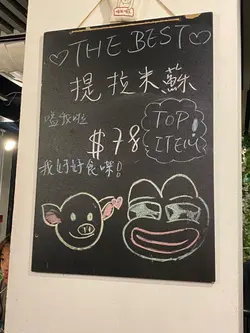 THE BEST
提拉米蘇
嗌我啦
$78
TOP!
ITEM
我好好食㗎!